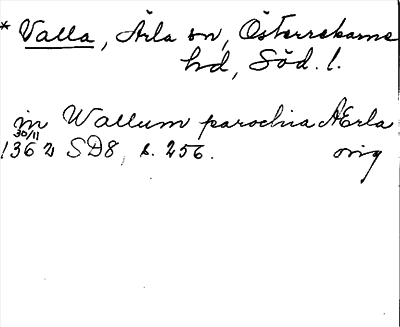 * Valla, Ärla sn, Österrekarne
hd, Söd. l.
in Wallum parochia Ærla
30/11
1362 SD8, s. 256. orig